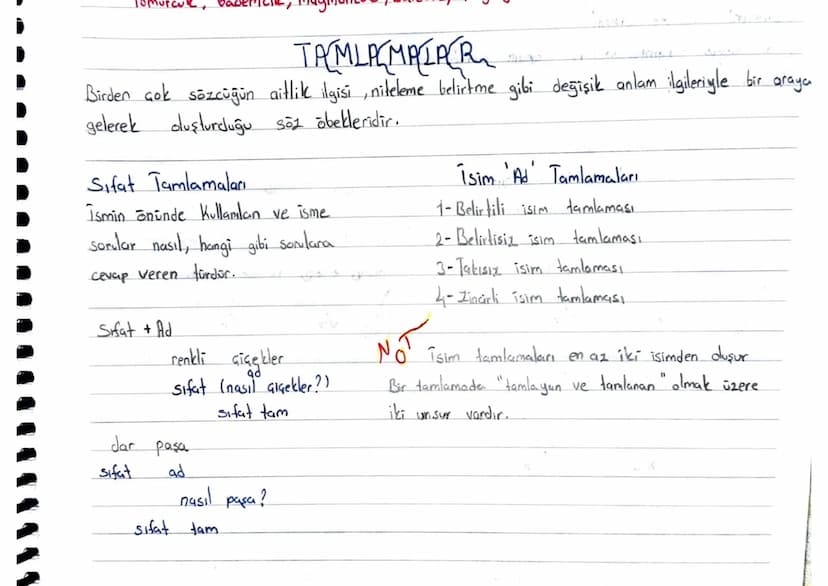 Tomurcuk,
TAMLAMALAR
Birden çok sözcüğün aitlik ilgisi, niteleme belirtme gibi değişik anlam ilgileriyle bir araya
gelerek oluşturduğu söz öbekleridir.
Sıfat Tamlamaları
İsmin önünde kullanılan ve isme
sorular nasıl, hangi gibi sorulara
cevap veren türdür.
Sıfat + Ad
renkli çiçekler
ad
sıfat (nasıl çiçekler?)
sıfat tam
dar paşa
sıfat ad
nasıl paşa?
sıfat tam
İsim 'Ad' Tamlamaları
1- Belirtili isim tamlaması
2- Belirtisiz isim tamlaması
3- Takısız isim tamlaması
4- Zincirli isim tamlaması
NOT İsim tamlamaları en az iki isimden oluşur
Bir tamlamada "tamlayan ve tamlanan" olmak üzere
iki unsur vardır.